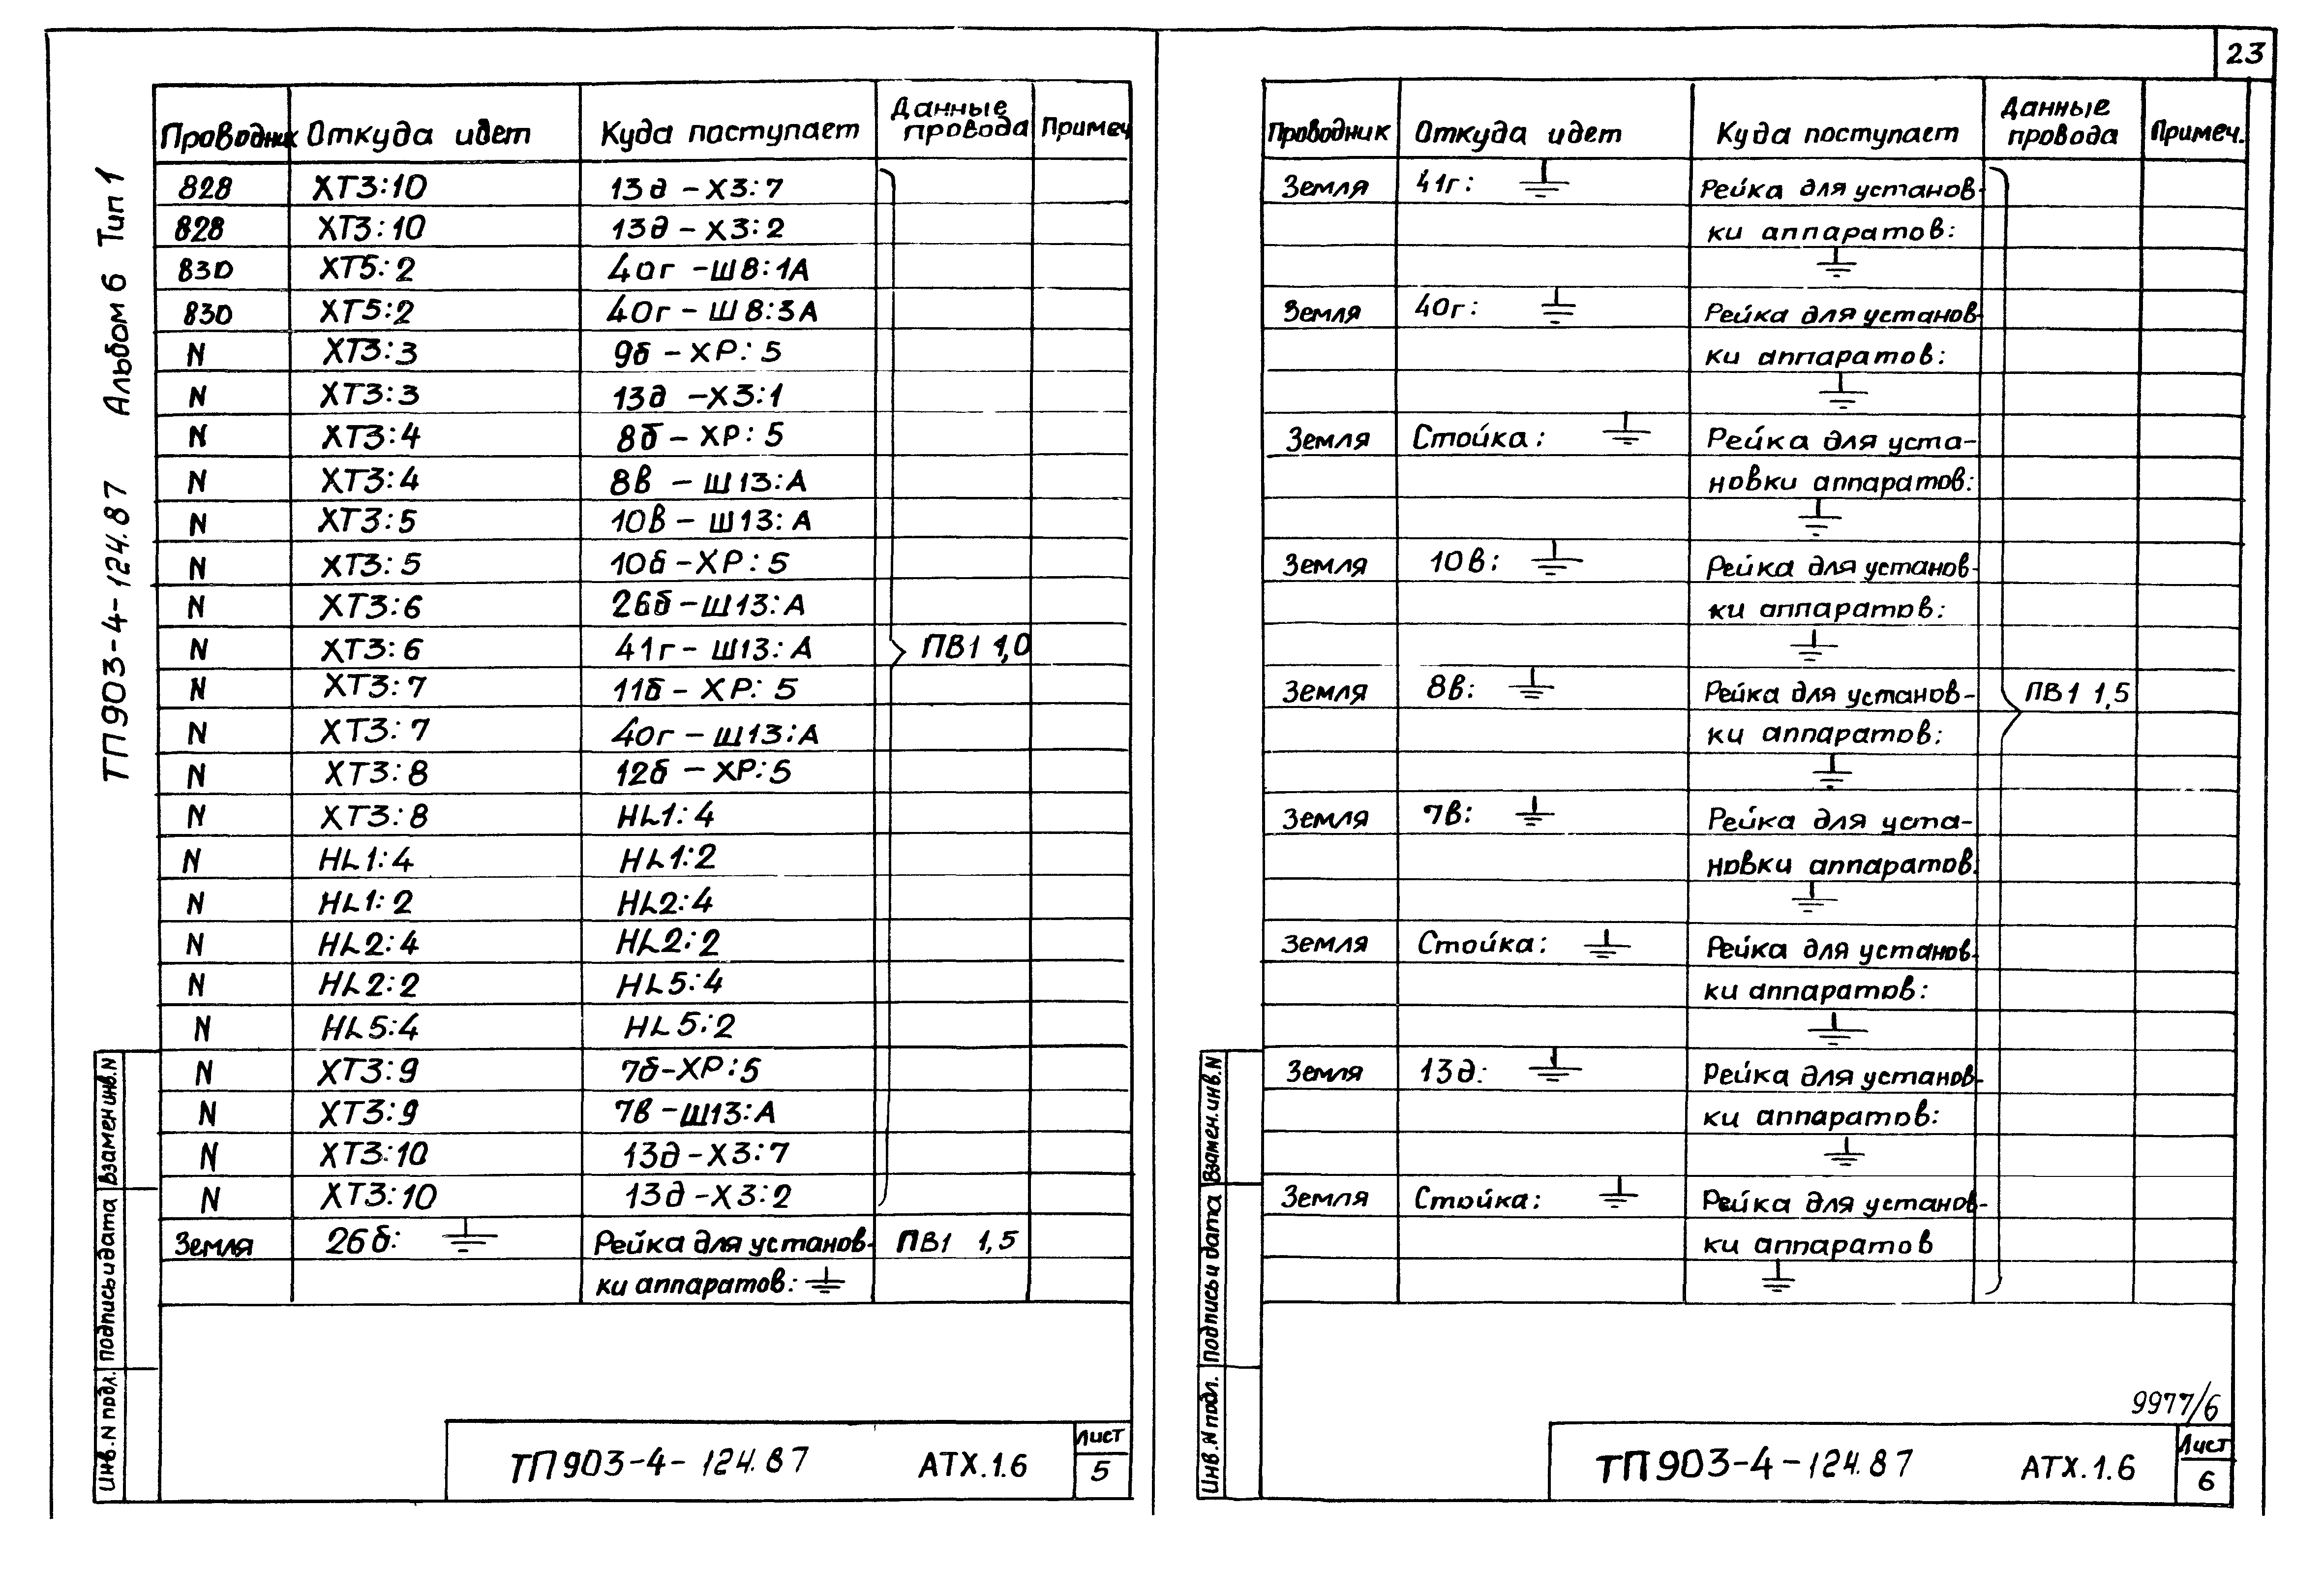 23
ТП903-4-124.87 Альбом 6 Тип 1
Проводник Откуда идет Куда поступает Данные провода Примеч.
828 ХТ3:10 13д-Х3:7
828 ХТ3:10 13д-Х3:2
830 ХТ5:2 40г-Ш8:1А
830 ХТ5:2 40г-Ш8:3А
N ХТ3:3 9б-ХР:5
N ХТ3:3 13д-Х3:1
N ХТ3:4 8б-ХР:5
N ХТ3:4 8в-Ш13:А
N ХТ3:5 10в-Ш13:А
N ХТ3:5 10б-ХР:5
N ХТ3:6 26б-Ш13:А
N ХТ3:6 41г-Ш13:А ПВ1 1,0
N ХТ3:7 11б-ХР:5
N ХТ3:7 40г-Ш13:А
N ХТ3:8 12б-ХР:5
N ХТ3:8 HL1:4
N HL1:4 HL1:2
N HL1:2 HL2:4
N HL2:4 HL2:2
N HL2:2 HL5:4
N HL5:4 HL5:2
N ХТ3:9 7б-ХР:5
N ХТ3:9 7в-Ш13:А
N ХТ3:10 13д-Х3:7
N ХТ3:10 13д-Х3:2
Земля 26б: ⏚ Рейка для установ- ПВ1 1,5
ки аппаратов: ⏚
Инв. N подл. Подпись и дата Взамен инв. N
ТП903-4-124.87 АТХ.1.6 Лист 5
Проводник Откуда идет Куда поступает Данные провода Примеч.
Земля 41г: ⏚ Рейка для установ-
ки аппаратов:
⏚
Земля 40г: ⏚ Рейка для установ-
ки аппаратов:
⏚
Земля Стойка: ⏚ Рейка для уста-
новки аппаратов:
⏚
Земля 10в: ⏚ Рейка для установ-
ки аппаратов:
⏚
Земля 8в: ⏚ Рейка для установ- ПВ1 1,5
ки аппаратов:
⏚
Земля 7в: ⏚ Рейка для уста-
новки аппаратов:
⏚
Земля Стойка: ⏚ Рейка для установ-
ки аппаратов:
⏚
Земля 13д: ⏚ Рейка для установ-
ки аппаратов:
⏚
Земля Стойка: ⏚ Рейка для установ-
ки аппаратов
⏚
Инв. N подл. Подпись и дата Взамен. инв. N
9977/6
ТП903-4-124.87 АТХ.1.6 Лист 6